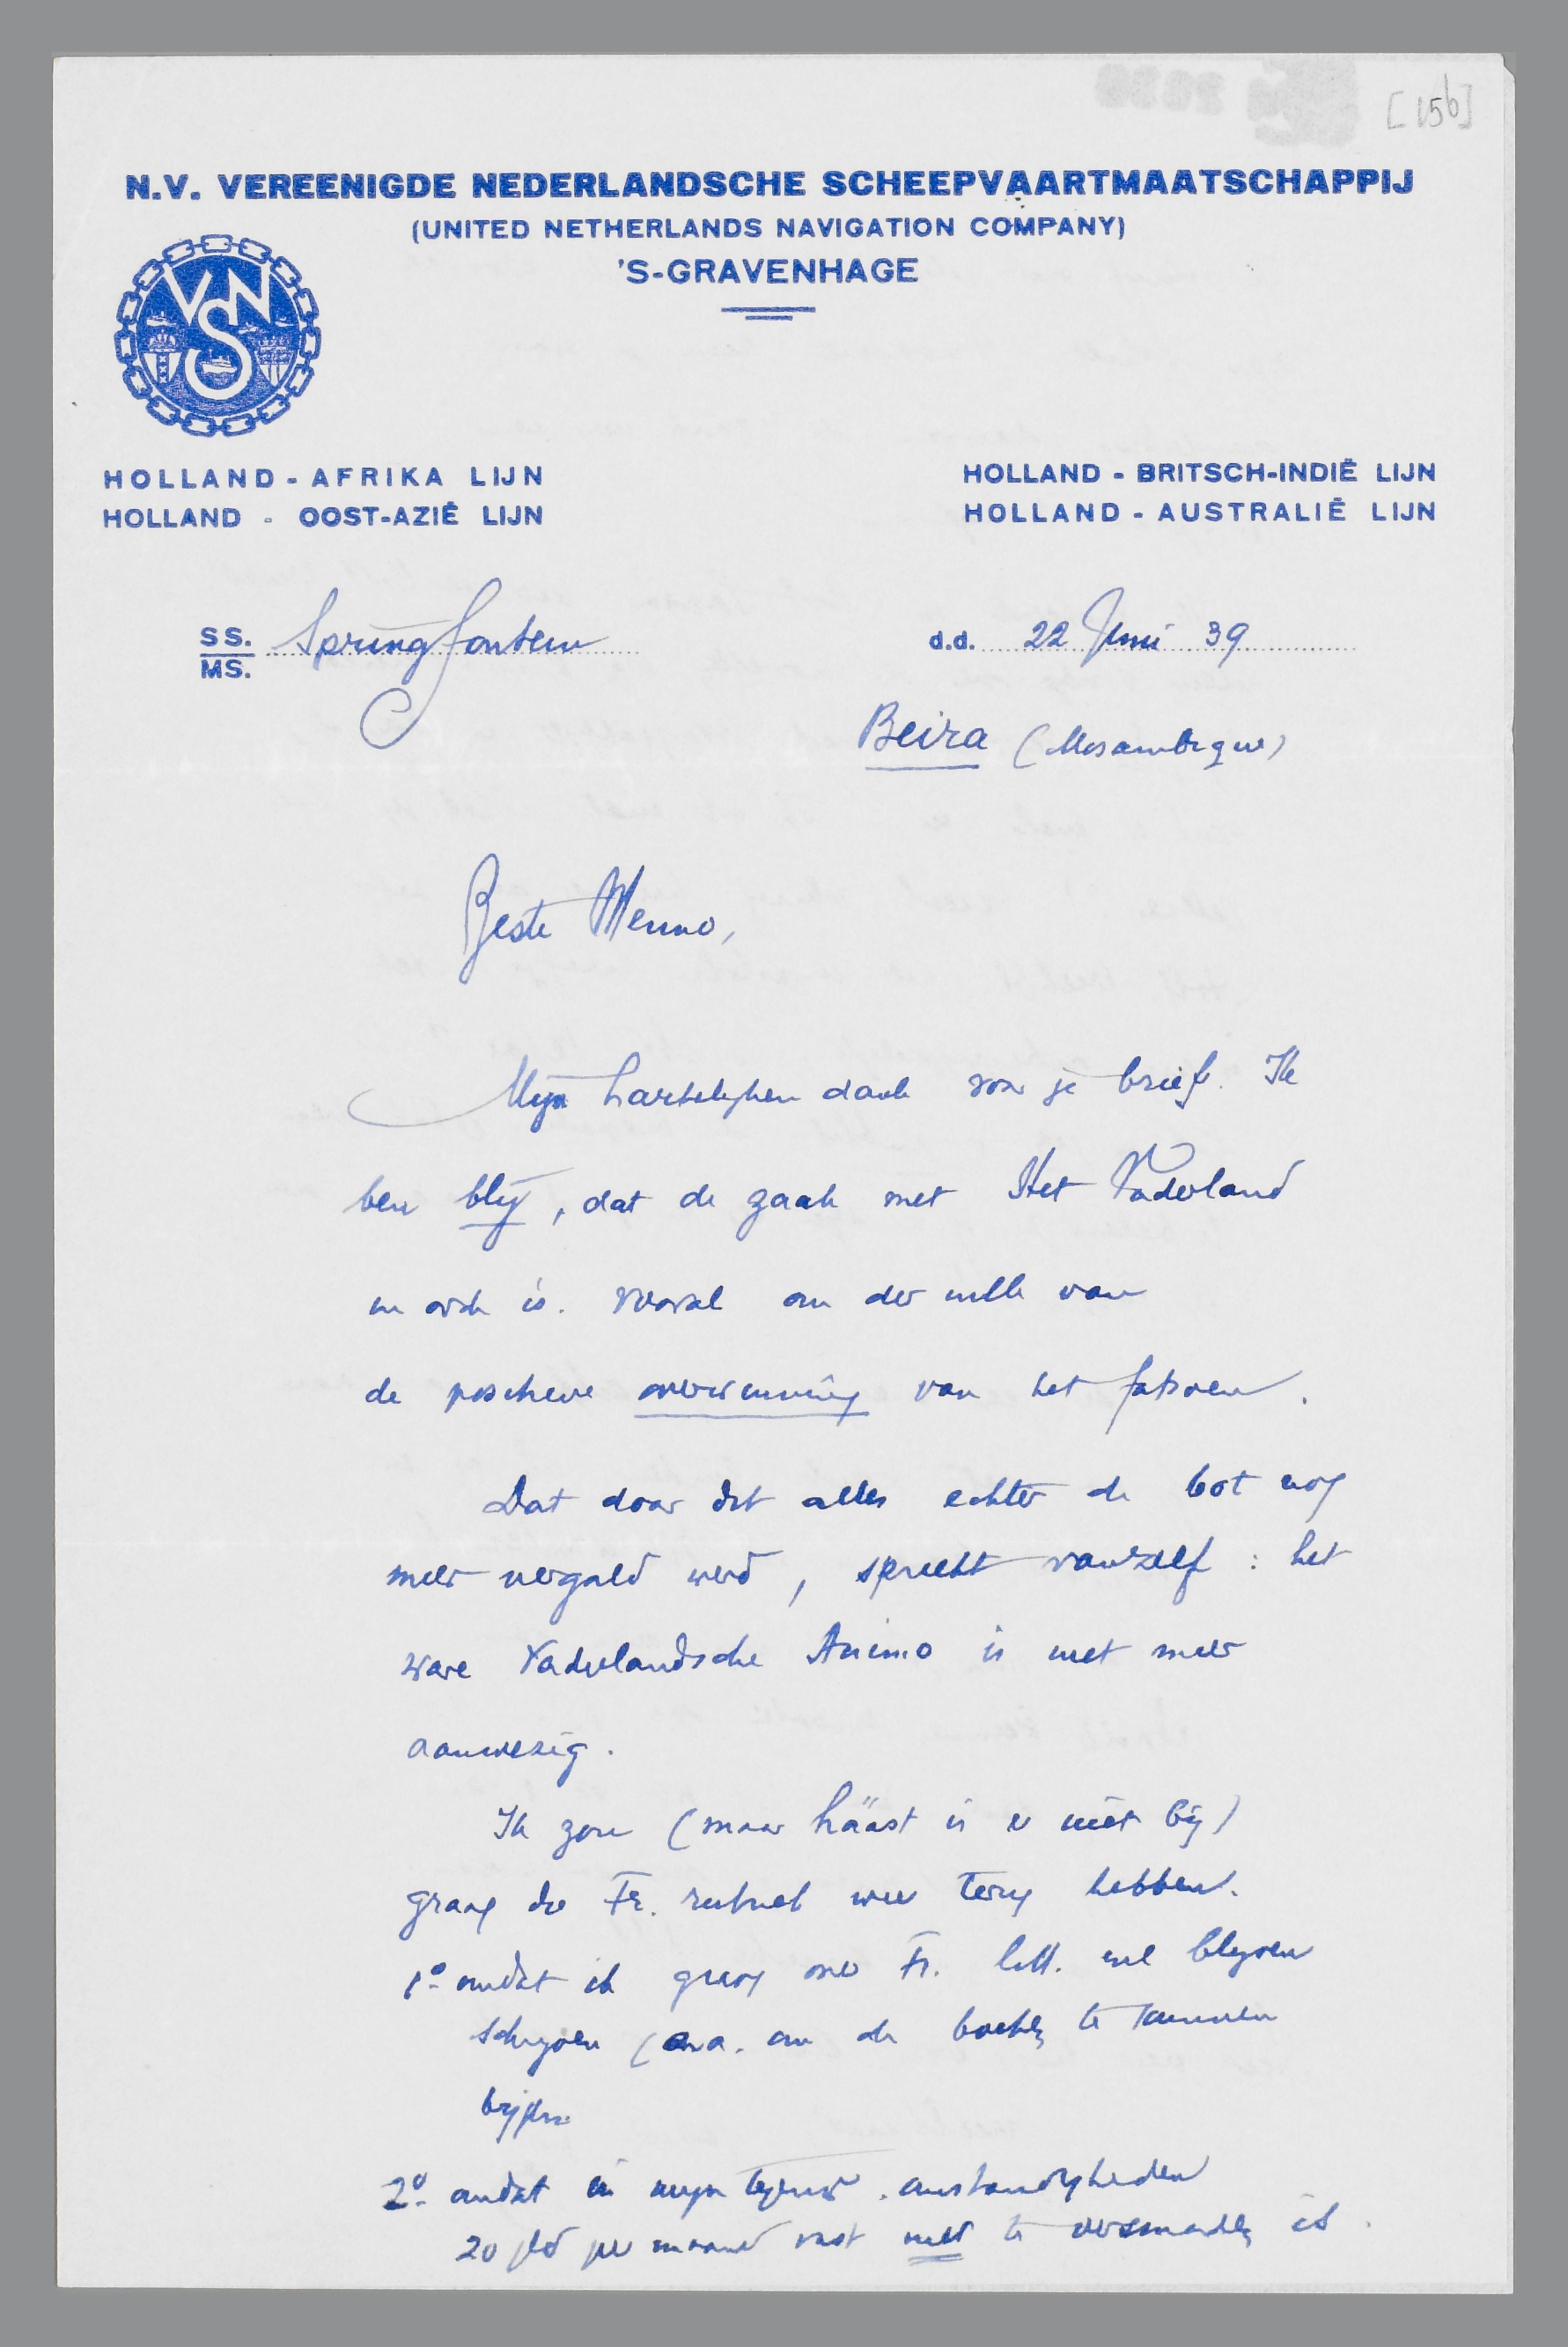 [156]
N.V. VEREENIGDE NEDERLANDSCHE SCHEEPVAARTMAATSCHAPPIJ
(UNITED NETHERLANDS NAVIGATION COMPANY)
'S-GRAVENHAGE
VNS
HOLLAND - AFRIKA LIJN
HOLLAND - OOST-AZIË LIJN
HOLLAND - BRITSCH-INDIË LIJN
HOLLAND - AUSTRALIË LIJN
SS. Springfontein
MS.
d.d. 22 Juni 39
Beira (Mosambique)
Beste Menno,
Mijn hartelijken dank voor je brief. Ik
ben blij, dat de zaak met Het Vaderland
in orde is. Vooral om der wille van
de overwinning van het fatsoen.
Dat door dit alles echter de bot nog
meer vergald werd, spreekt vanzelf: het
ware Vaderlandsche Animo is niet meer
aanwezig.
Ik zou (maar hääst is er niet bij)
graag die Fr. rubriek weer terug hebben.
1º omdat ik graag over Fr. litt. wil blijven
schrijven (o.a. om de boeken te kunnen
2º omdat in mijn omstandigheden
20 gld per maand vast niet te versmaden is.